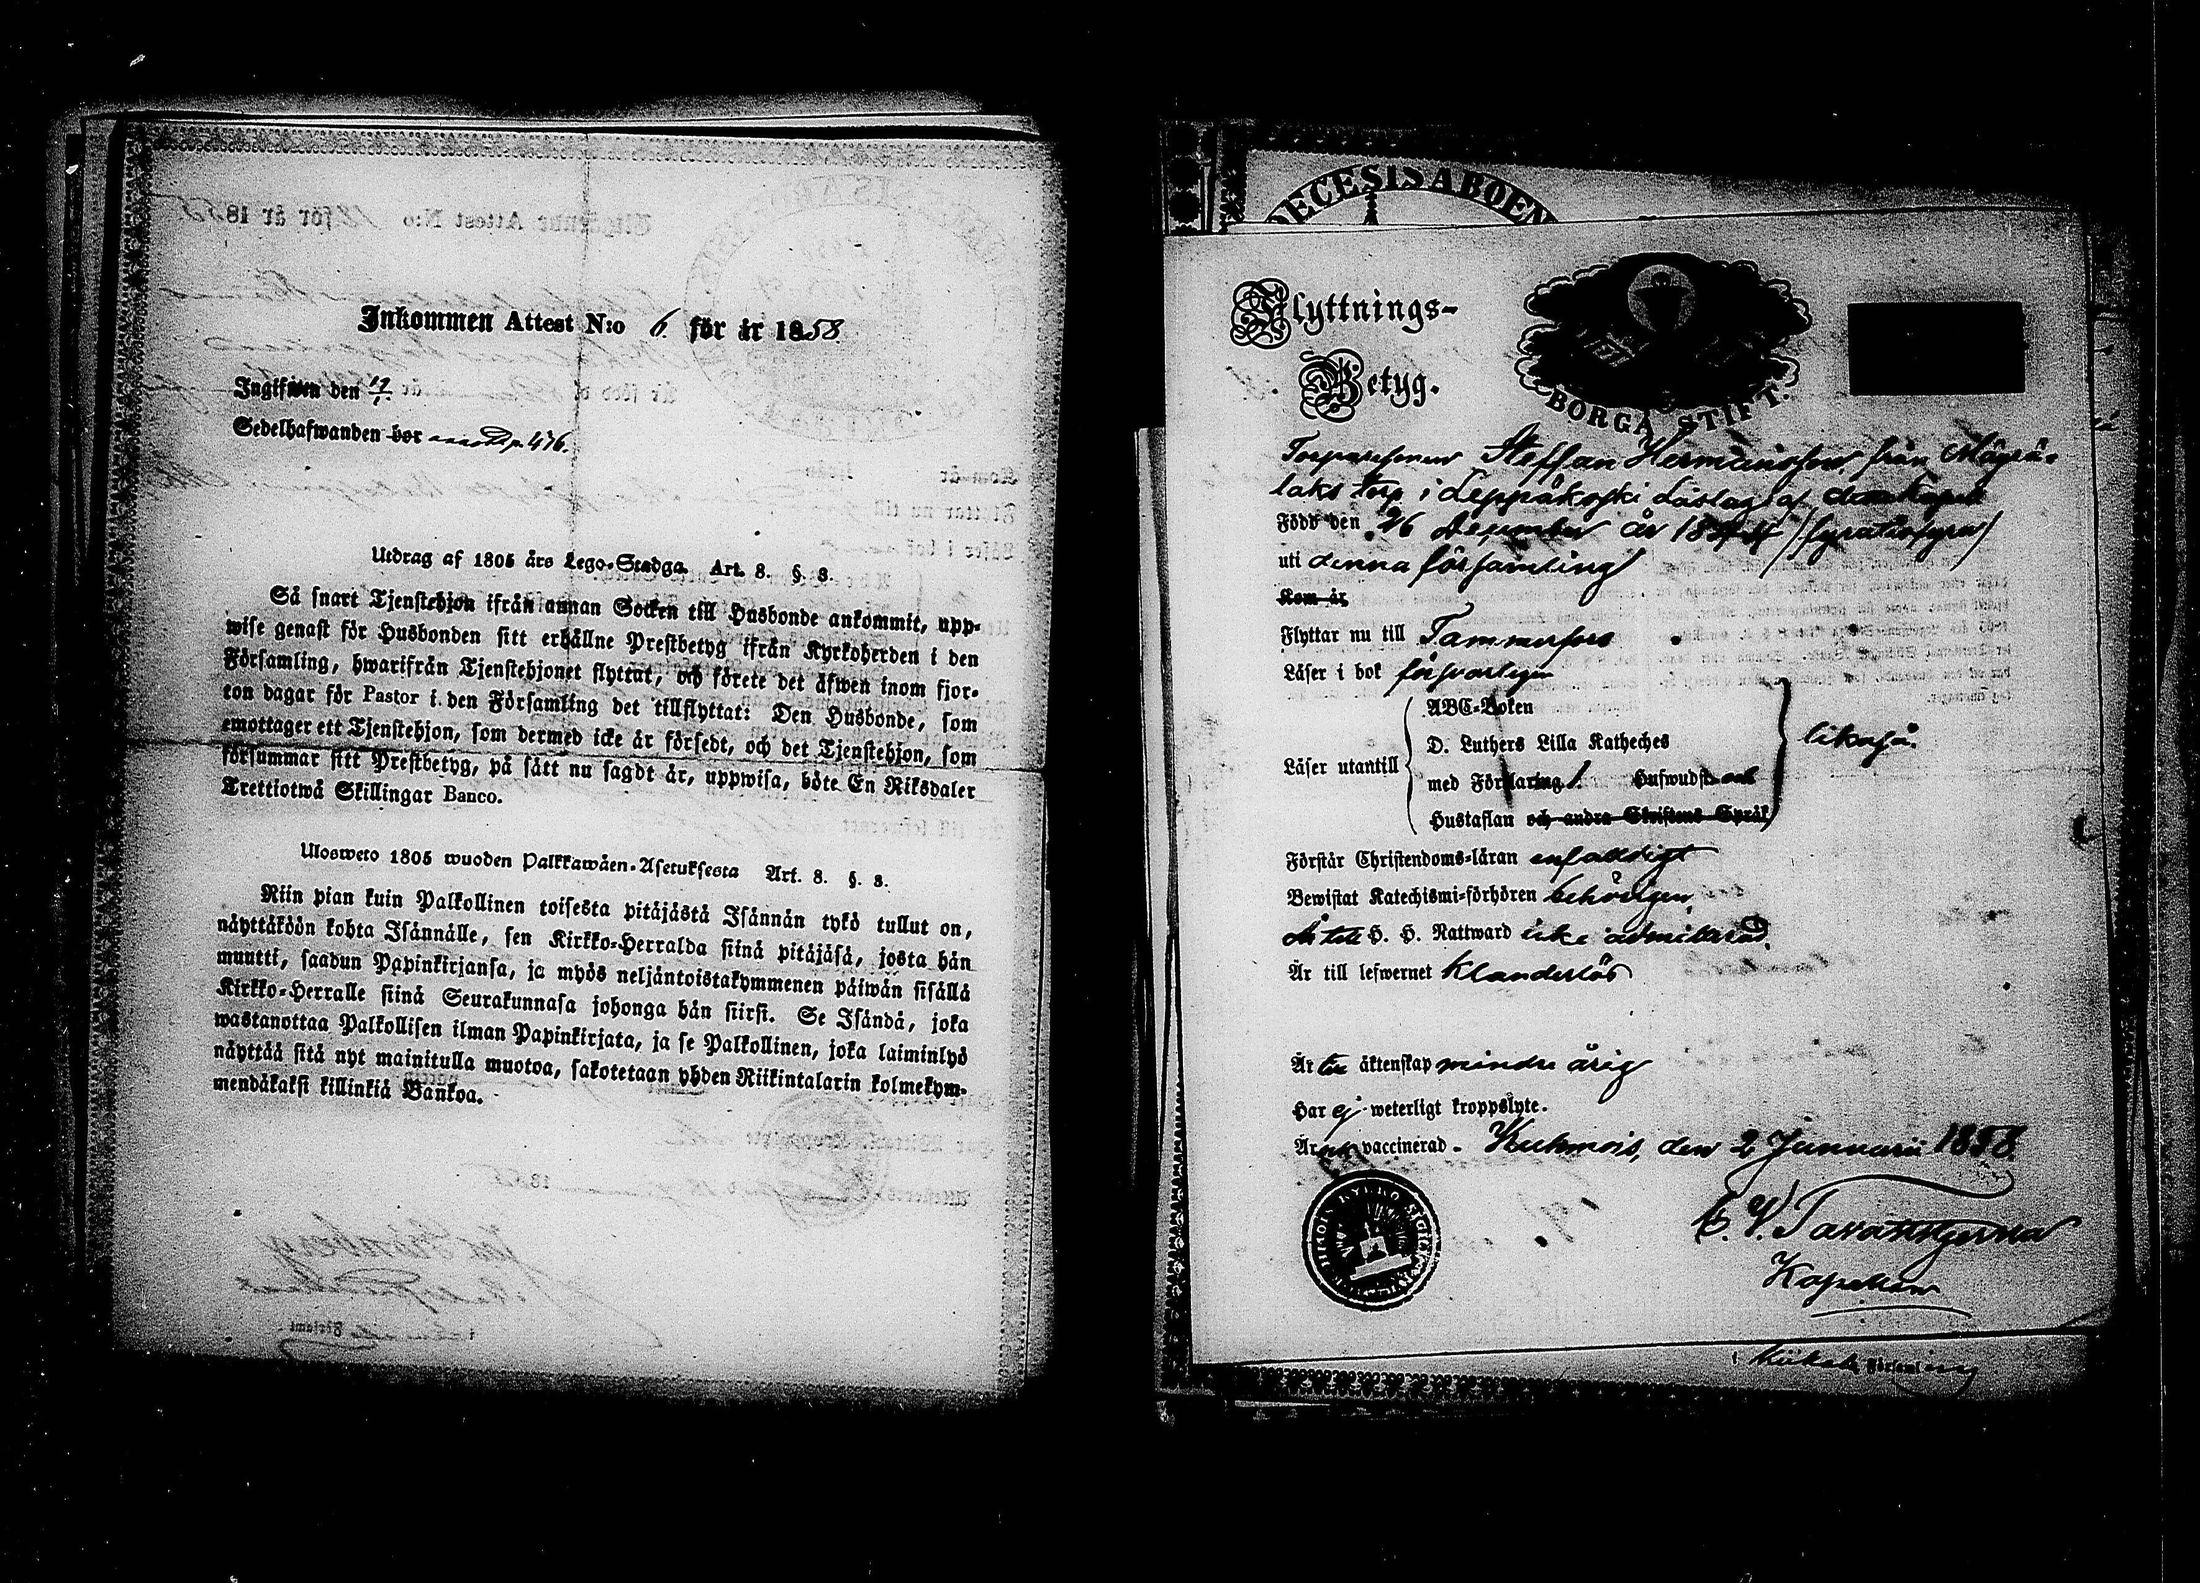 Inkommen Attest N:o 6. för år 1858.
Ingifwen den 17/1.
Sedelhafwanden bor p. 476.
Utdrag af 1805 års Lego-Stadga Art. 8. §. 8.
Så snart Tjenstehjon ifrån annan Socken till Husbonde ankommit, upp-
wise genast för Husbonden sitt erhållne Prestbetyg ifrån Kyrkoherden i den
Församling, hwarifrån Tjenstehjonet flyttat, och förete det äfwen inom fjor-
ton dagar för Pastor i den Församling det tillflyttat: Den Husbonde, som
emottager ett Tjenstehjon, som dermed icke är försedt, och det Tjenstehjon, som
försummar sitt Prestbetyg, på sätt nu sagdt är, uppwisa, böte En Riksdaler
Trettiotwå Skillingar Banco.
Ulosweto 1805 wuoden Palkkawäen-Asetuksesta Art. 8. §. 8.
Niin pian kuin Palkollinen toisesta pitäjästä Isännän tykö tullut on,
näyttäköön kohta Isännälle, sen Kirkko-Herralda siinä pitäjäsä, josta hän
muutti, saadun Papinkirjansa, ja myös neljäntoistakymmenen päiwän sisällä
Kirkko-Herralle siinä Seurakunnasa johonga hän siirsi. Se Isändä, joka
wastanottaa Palkollisen ilman Papinkirjata, ja se Palkollinen, joka laiminlyö
näyttää sitä nyt mainitulla muotoa, sakotetaan yhden Riikintalarin kolmekym-
mendäkaksi killinkiä Bankoa.
DECESIS ABOEN
Flyttnings-
Betyg.
BORGÅ STIFT.
Torparesonen Steffan Hermansson från Mägrä-
laks torp i Leppäkoski Låstag af
Född den 26 December år 1844 /fyratiofyra/
uti denna församling
Kom år
Flyttar nu till Tammerfors
Läser i bok försvarligen
Läser utantill
ABC-Boken
D. Luthers Lilla Katheches
med Förklaring Hufwudst. och
Hustaflan och andra Skriftens Språk
likaså.
Förstår Christendoms-läran enfaldigt
Bewistat Katechismi-förhören behörigen
Är till H. H. Nattward icke admitterad.
Är till lefwernet klanderlös
Är till äktenskap mindre årig
Har ej weterligt kroppslyte.
Är vaccinerad. Kuhmois, den 2 Januarii 1858
Kapellan